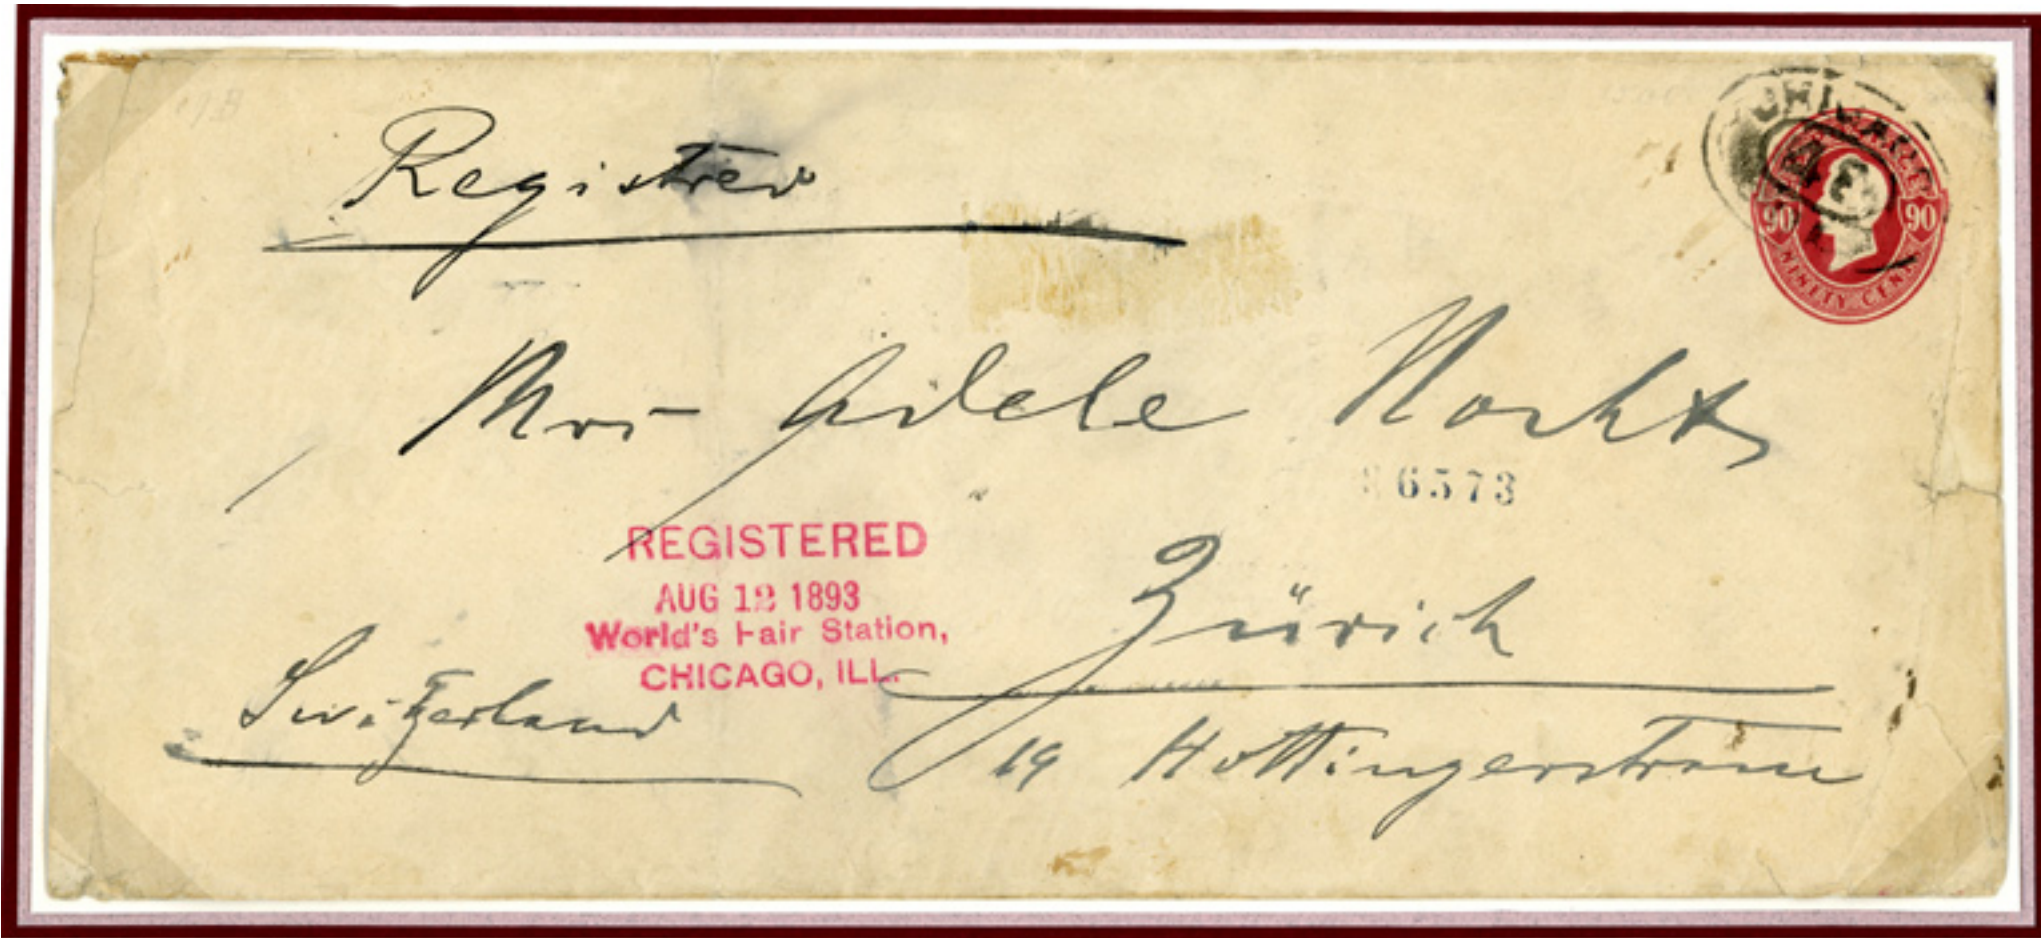 Registered
CHICAGO
90 90
NINETY CENTS
Mrs Adele Nacht
6573
REGISTERED
AUG 12 1893
World's Fair Station,
CHICAGO, ILL.
Zürich
Switzerland
19 Hottingerstrasse